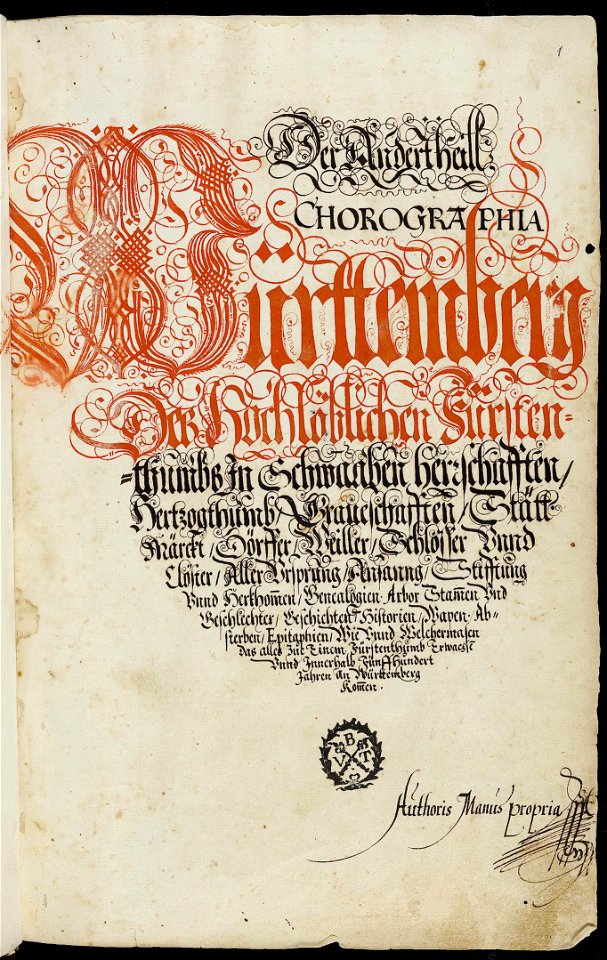 1
Der Andertheill
CHOROGRAPHIA
Württemberg
Des Hochlöblichen Fürsten=
=thumbs In Schwaaben herrschafften /
Hertzogthumb / Graueschafften / Stätt
Märckt / Dörffer / Weiller / Schlösser Vnnd
Clöster / Aller Vrsprung / Anfanng / Stifftung
Vnnd Herkhom̃en / Genealogien Arbor Stam̃en Vnd
Geschlechter / Geschichten Historien / Wapen Ab=
sterben / Epitaphien / Wie Vnnd Welchermasen
Das alles Zůt Einem Fürstenthumb Erwachst
Vnnd Innerhalb Fünffhundert
Jahren An Württemberg
Kom̃en .
B
V T
Authoris Manus propria